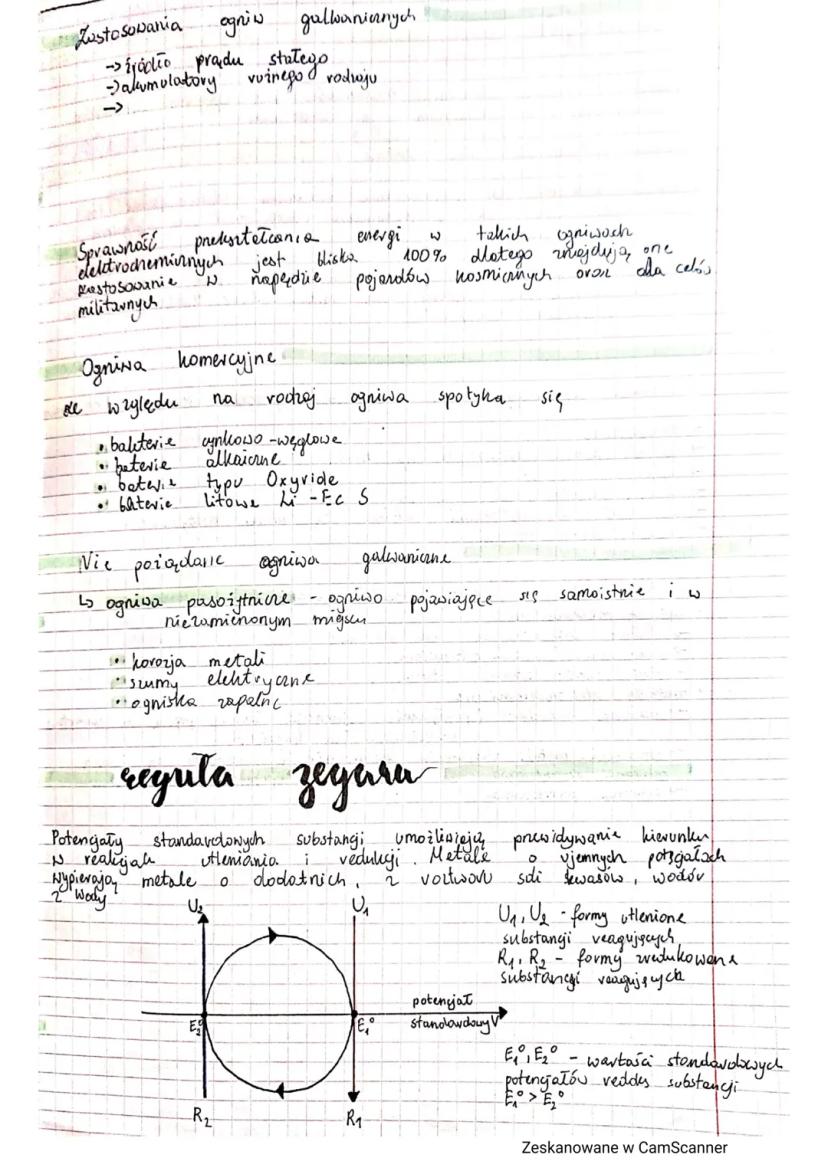 Zastosowania ogniw galwanicznych
→ źródło prądu stałego
→ akumulatory różnego rodzaju
→
Sprawność przekształcania energi w takich ogniwach
elektrochemicznych jest bliska 100% dlatego znajdują one
zastosowanie w napędzie pojazdów kosmicznych oraz dla celów
militarnych
Ogniwa komercyjne
ze względu na rodzaj ogniwa spotyka się
• bakterie cynkowo-węglowe
• baterie alkaiczne
• baterie typu Oxyride
• baterie litowe Li-Fc S
Nie pożądane ogniwa galwaniczne
↳ ogniwa pasożytnicze - ogniwo pojawiające się samoistnie i w
niezamierzonym miejscu
• korozja metali
• szumy elektryczne
• ogniska zapalne
reguła zegara
Potencjały standardowych substancji umożliwiają przewidywanie kierunku
w reakcjach utleniania i redukcji. Metale o ujemnych potencjałach
wypierają metale o dodatnich, z roztworu soli kwasów, wodór
z wody
U₂ U₁
U₁, U₂ - formy utlenione
substancji reagujących
R₁, R₂ - formy zredukowane
substancji reagujących
potencjał
standardowy V
E₂⁰ E₁⁰
E₁⁰, E₂⁰ - wartości standardowych
potencjałów reddks substancji
E₁⁰ > E₂⁰
R₂ R₁
Zeskanowane w CamScanner